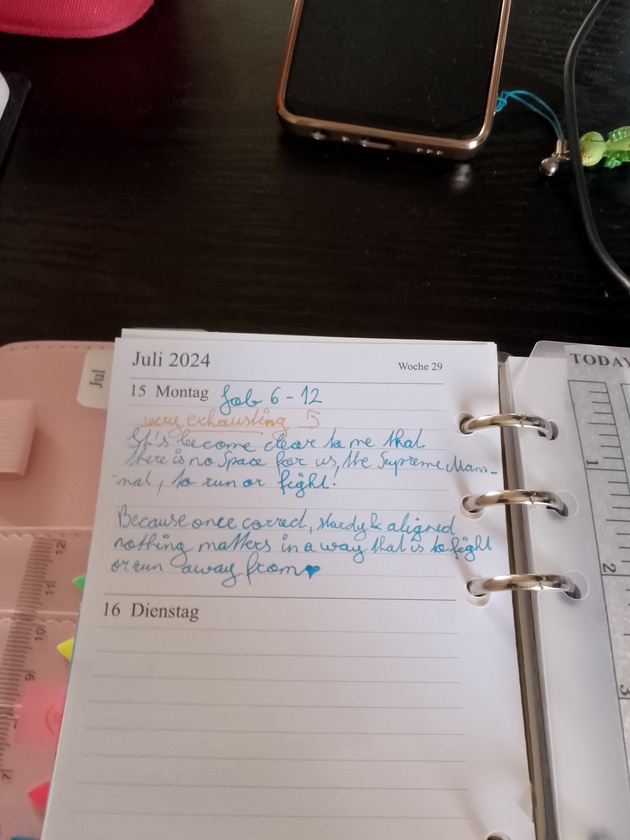 Juli 2024
Woche 29
Jul
15 Montag Job 6 - 12
very exhausting 5
It's become clear to me that
there is no Space for us, the Supreme Mam-
mal, to run or fight.
Because once carved, sturdy & aligned
nothing matters in a way that is to fight
or run away from ♥
16 Dienstag
TODAY
1
2
3
12
11
10
9